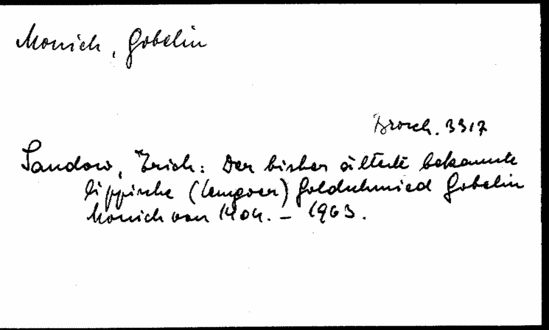 Monich, Gobelin
Brosch. 3317
Sandow, Erich: Der bisher älteste bekannte
lippische (Lemgoer) Goldschmied Gobelin
Monich von 1404. – 1963.